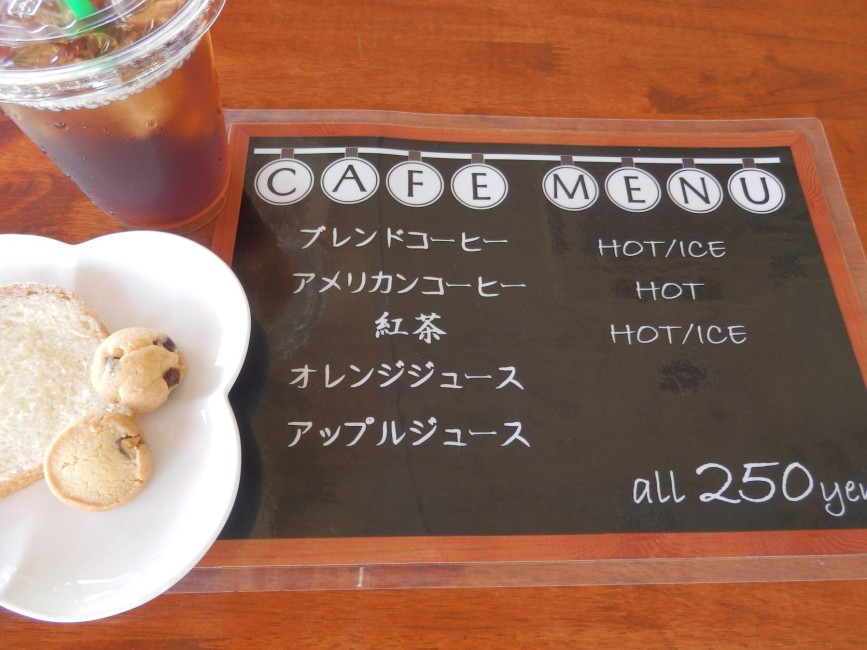 CAFE MENU
ブレンドコーヒー HOT/ICE
アメリカンコーヒー HOT
紅茶 HOT/ICE
オレンジジュース
アップルジュース
all 250yen